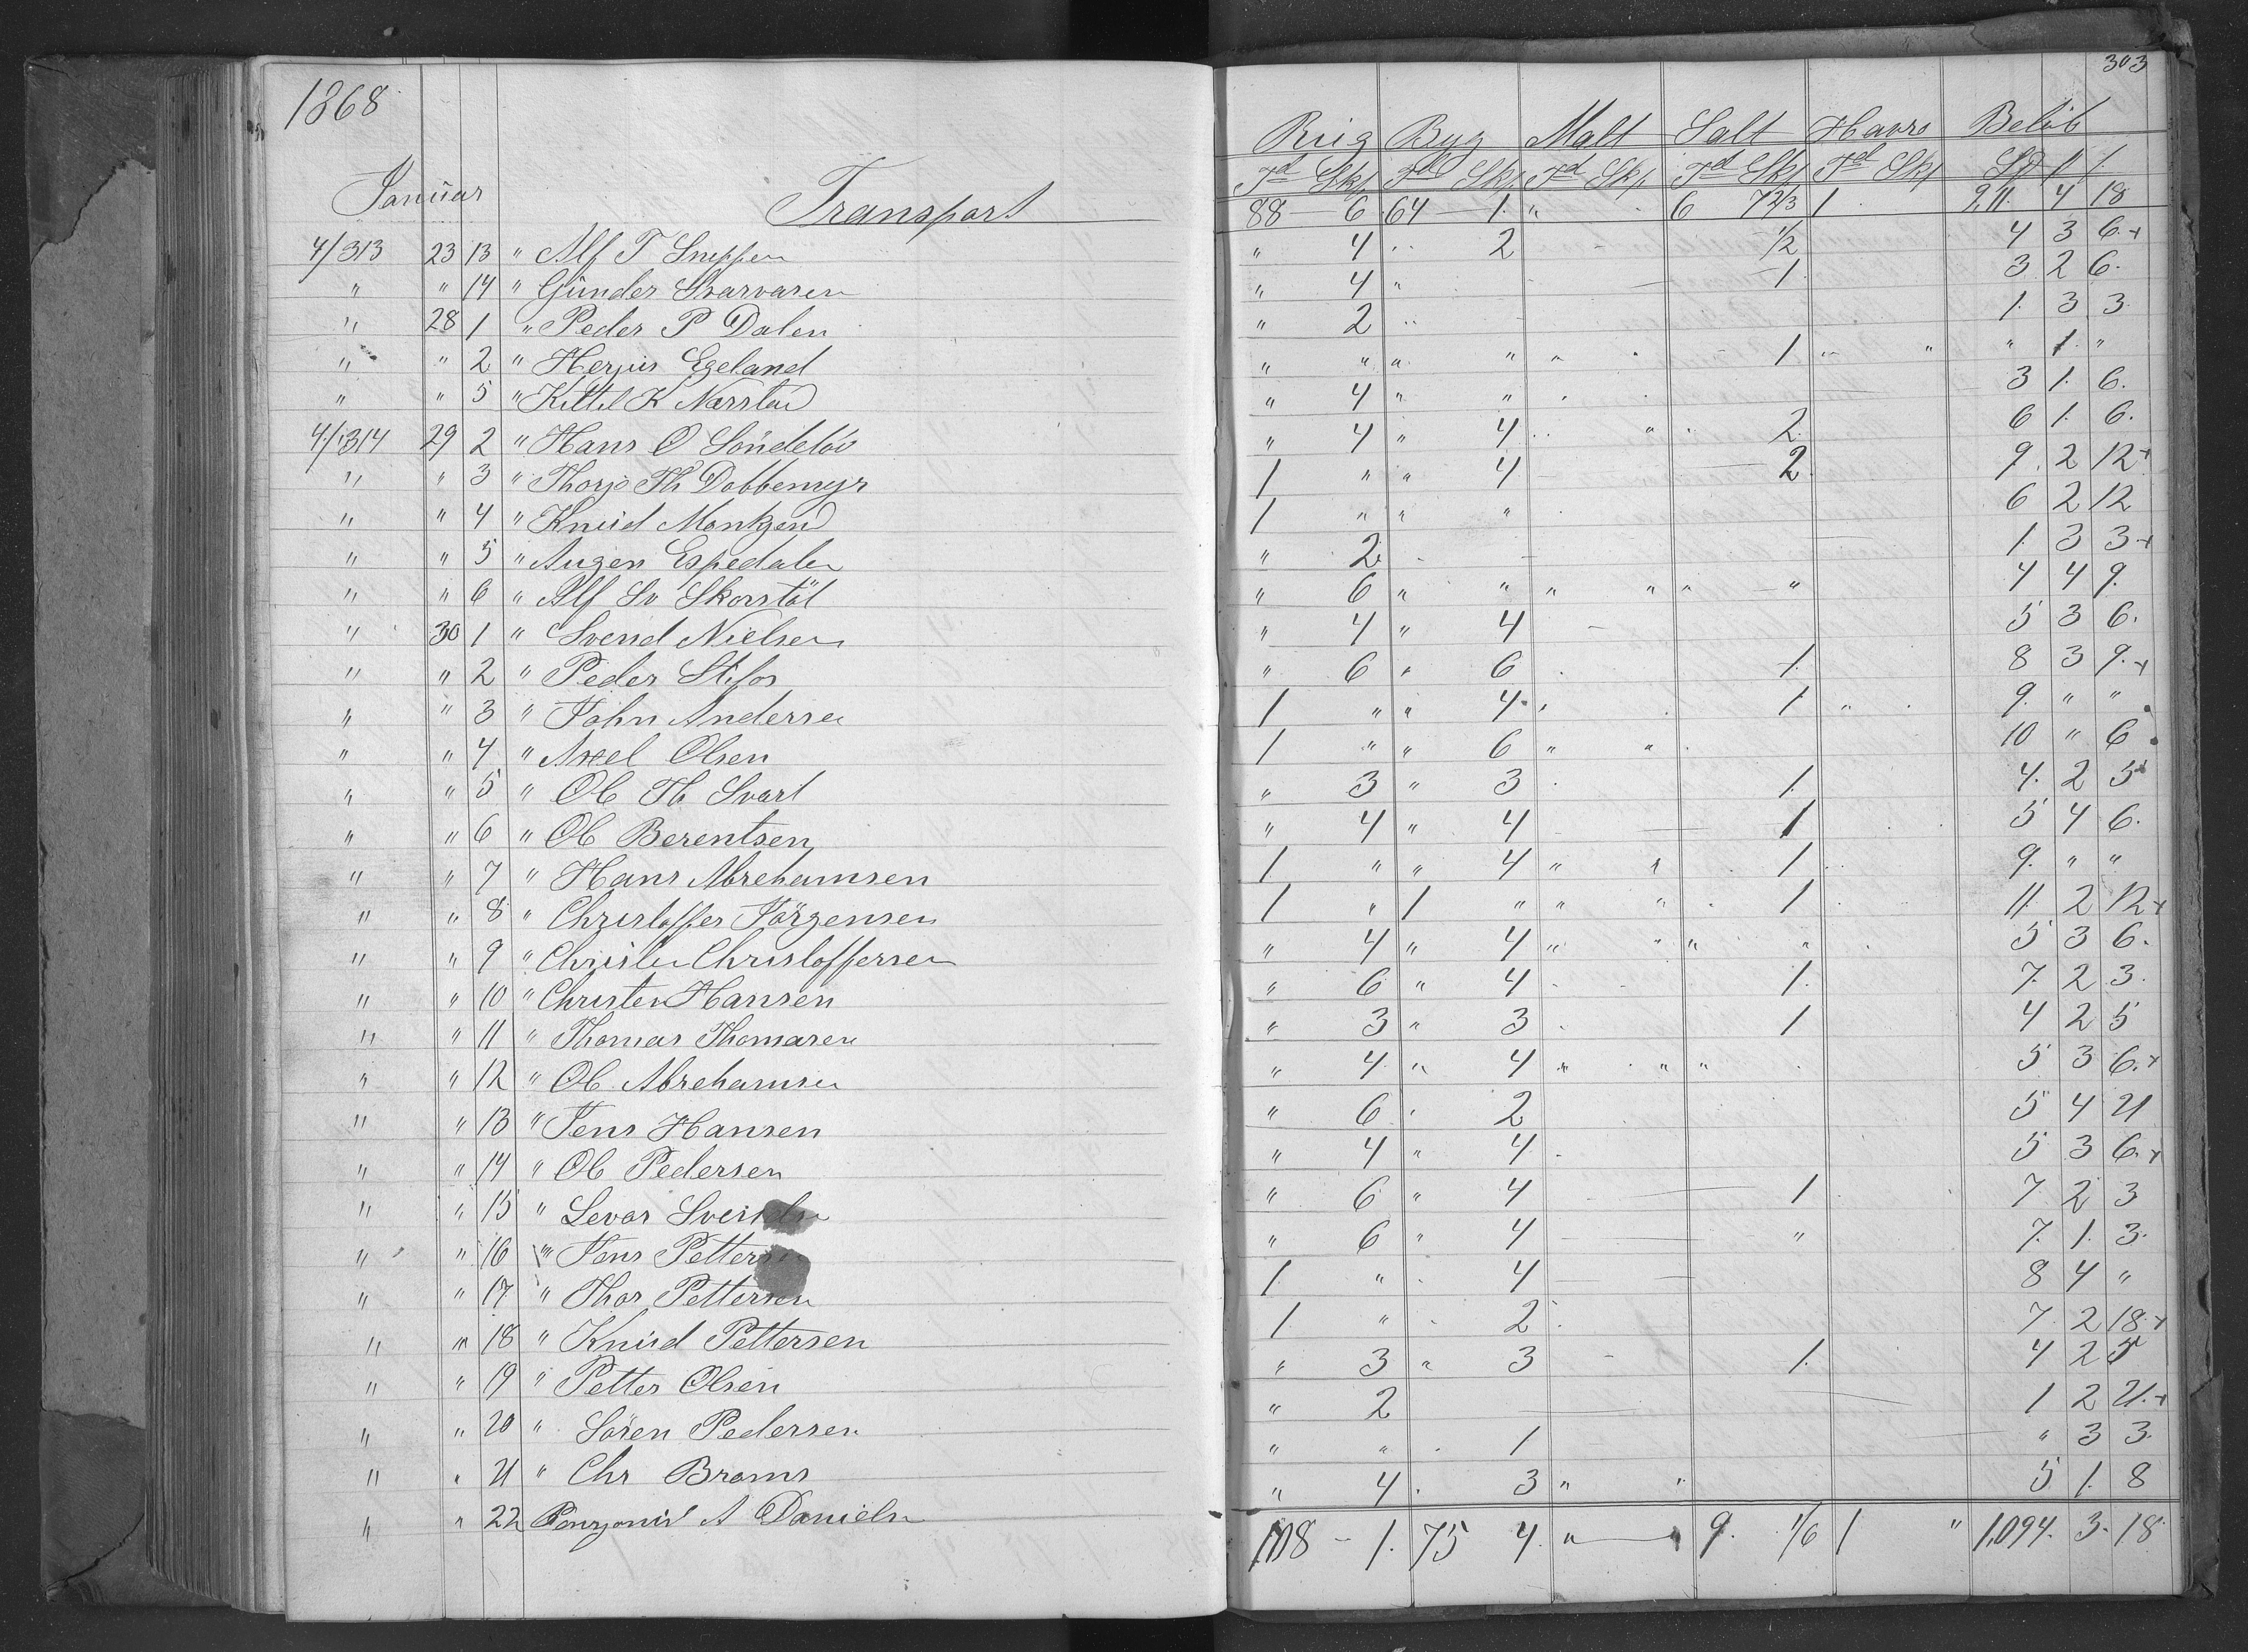 1868
303
Rug Byg Malt Salt Havre Beløb
Januar
Td Skp Td Skp Td Skp Td Skp Td Skp Sp
Transport 88 — 6 64 — 1 " 6 7 2/3 1 911 4 18
4/313 23 13 " Alf T " 4 2 1/2 4 3 6
" " 14 " Gunder Svarvaren " 4 " 1 3 2 6
" 28 1 " Peder P Dalen " 2 1 3 3
" " 2 " Egeland " " " " " 1 " " " 1 "
" " 5 " Kittel K Narstad " 4 " " 3 1 6
4/314 29 2 " Hans O Söndeløv " 4 " 4 " 2 6 1 6
" " 3 " Thorjo Th Dobbemyr 1 " " 4 2 9 2 12
" " 4 " Knud 1 " " " 6 2 12
" " 5 " Augen Espedalen " 2 1 3 3
" " 6 " Alf Sv Skorstöl " 6 " " " " " " 4 4 9
" 30 1 " Svend Nielsen " 4 " 4 5 3 6
" " 2 " Peder Stifos " 6 " 6 1 8 3 9
" " 3 " John Andersen 1 " " 4 1 " 9 " "
" " 4 " Axel Olsen 1 " " 6 " " 10 " 6
" " 5 " Ole Th Svart " 3 " 3 1 4 2 5
" " 6 " Ole Berentsen " 4 " 4 1 5 4 6
" " 7 " Hans Abrehamsen 1 " " 4 " 1 9 " "
" " 8 " Christoffer Jörgensen 1 " 1 " " " 1 11 2 12
" " 9 " Christen Christoffersen " 4 " 4 " " " " 5 3 6
" " 10 " Christen Hansen " 6 " 4 1 7 2 3
" " 11 " Thomas Thomasen " 3 " 3 1 4 2 5
" " 12 " Ole Abrehamsen " 4 " 4 " " " 5 3 6
" " 13 " Jens Hansen " 6 2 5 4 21
" " 14 " Ole Pedersen " 4 " 4 5 3 6
" " 15 " Levor " 6 " 4 1 7 2 3
" " 16 " Jens Pettersen " 6 " 4 " 7 1 3
" " 17 " Thor Pettersen 1 " 4 8 4 "
" " 18 " Knud Pettersen 1 " 2 7 2 18
" " 19 " Petter Olsen " 3 " 3 1 4 2 5
" " 20 " Sören Pedersen " 2 1 2 21
" " 21 " Chr Broms " " 1 " 3 3
" " 22 A Danielsen " 4 3 " " 5 1 8
108 - 1 75 4 " " 9 1/6 1 " 1,094 3 18